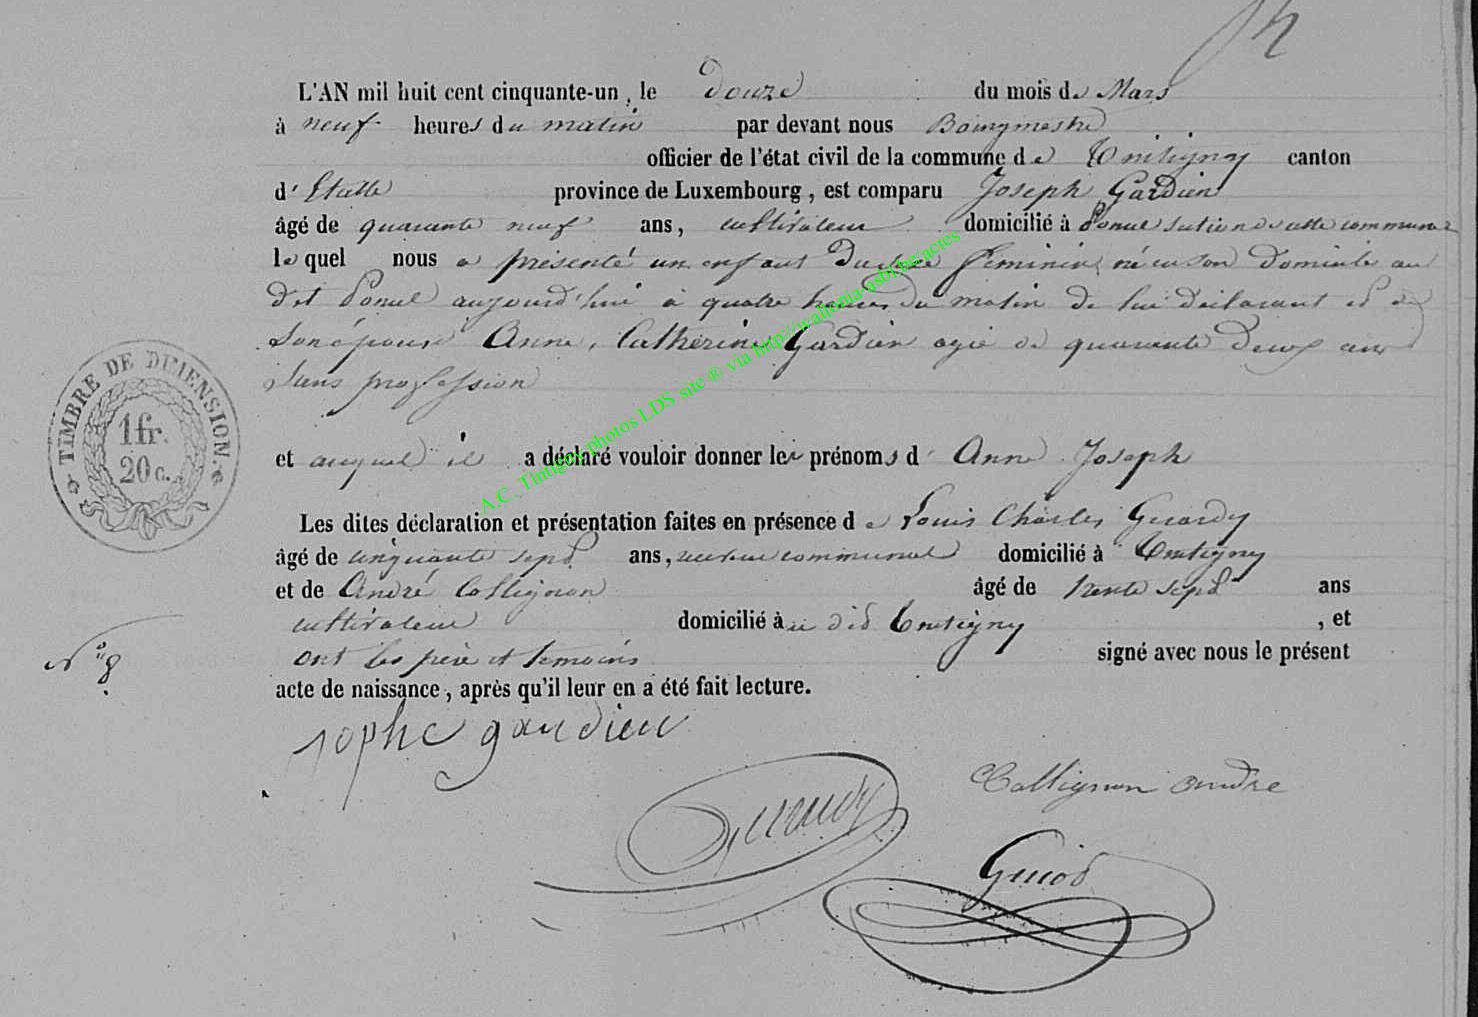 L'AN mil huit cent cinquante-un, le douze du mois de Mars
à neuf heures du matin par devant nous Bourgmestre
officier de l'état civil de la commune de Tintigny canton
d'Etalle province de Luxembourg, est comparu Joseph Gardien
âgé de quarante neuf ans, cultivateur domicilié à Poncel section de cette commune
lequel nous a présenté un enfant du sexe féminin né en son domicile au
dit Poncel aujourd'hui à quatre heures du matin de lui déclarant et de
son épouse Anne, Catherine Gardien agée de quarante deux ans
sans profession
et auquel il a déclaré vouloir donner les prénoms d'Anne Joseph
Les dites déclaration et présentation faites en présence de Louis Charles Gerardy
âgé de cinquante sept ans, receveur communal domicilié à Tintigny
et de André Collignon âgé de trente sept ans
cultivateur domicilié à dit Tintigny, et
ont les père et témoins signé avec nous le présent
acte de naissance, après qu'il leur en a été fait lecture.
N° 8
TIMBRE DE DIMENSION
1 fr.
20 c.
josphe gardien
Collignon andre
Gerardy
Guiot
A.C. Tintigny photos LDS site ® via http://wallonia-asbl.be/actes